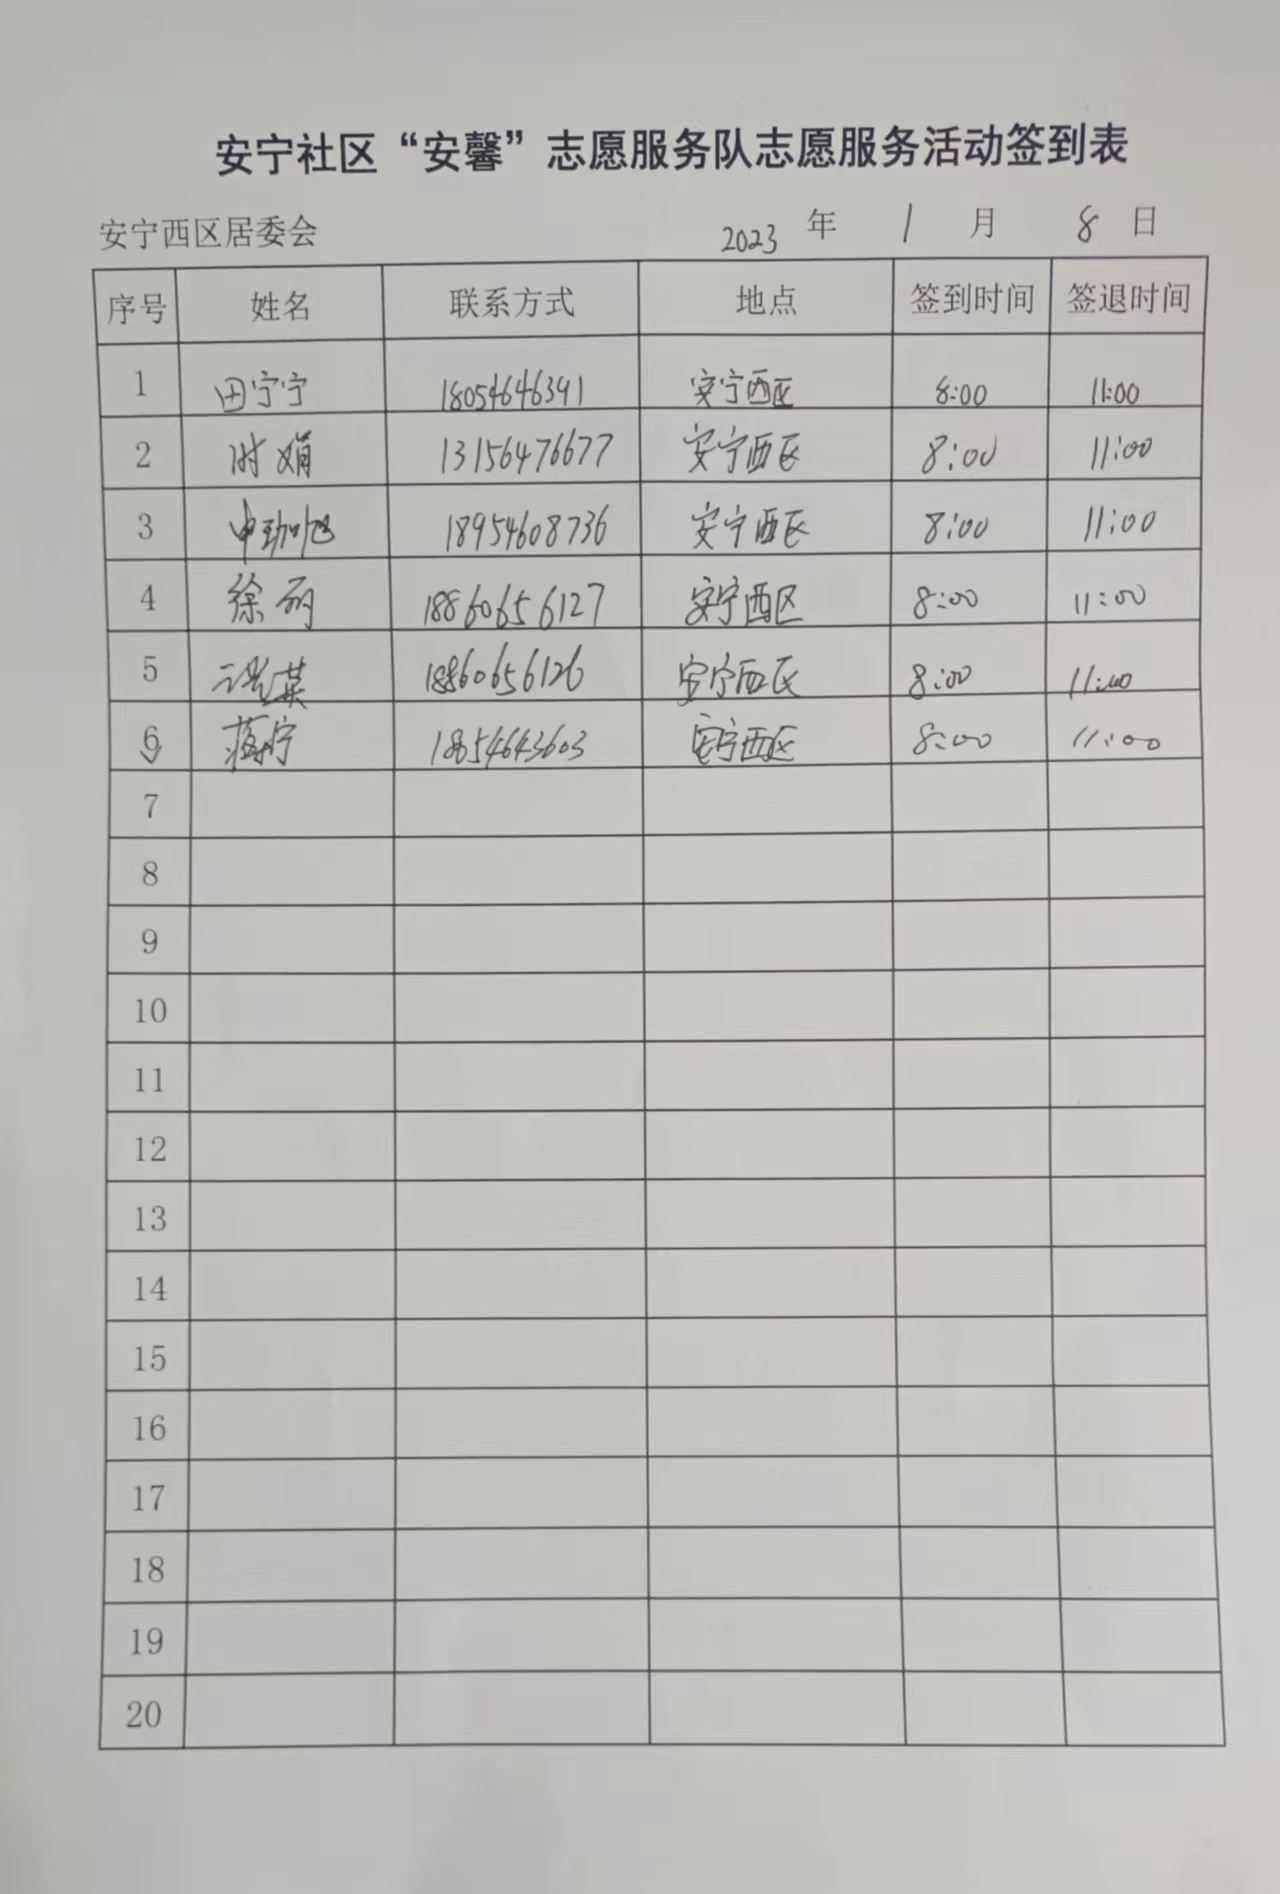 安宁社区“安馨”志愿服务队志愿服务活动签到表
安宁西区居委会 2023 年 1 月 8 日
序号 姓名 联系方式 地点 签到时间 签退时间
1 田宁宁 18054646391 安宁西区 8:00 11:00
2 时娟 13156476677 安宁西区 8:00 11:00
3 18954608736 安宁西区 8:00 11:00
4 徐丽 18860656127 安宁西区 8:00 11:00
5 18860656126 安宁西区 8:00 11:00
6 18654643603 安宁西区 8:00 11:00
7
8
9
10
11
12
13
14
15
16
17
18
19
20